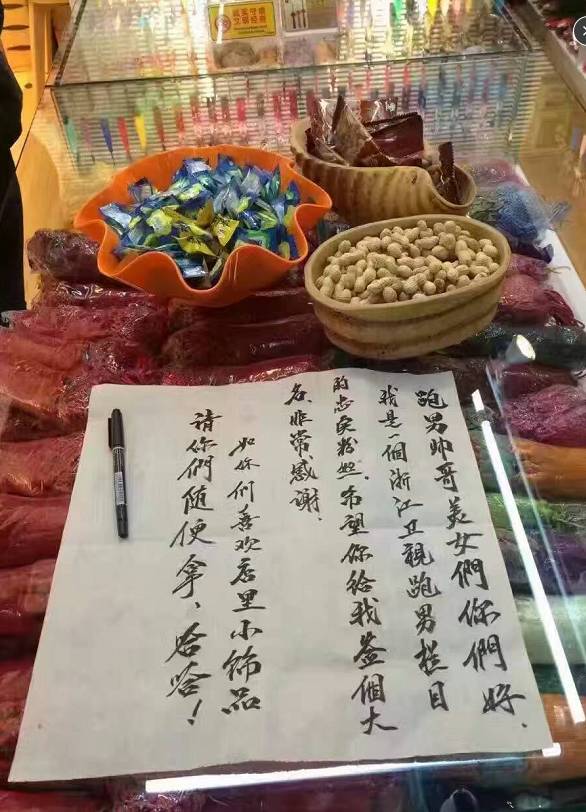 跑男帅哥美女們你們好、
我是一個浙江卫視跑男栏目
的忠实粉丝、希望你给我签個大
名、非常感谢、
如你们喜欢店里小饰品
请你們随便拿、哈哈！